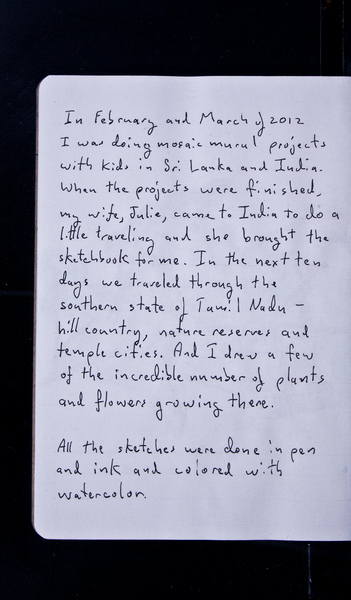 In February and March of 2012
I was doing mosaic mural projects
with kids in Sri Lanka and India.
When the projects were finished,
my wife, Julie, came to India to do a
little traveling and she brought the
sketchbook for me. In the next ten
days we traveled through the
southern state of Tamil Nadu –
hill country, nature reserves and
temple cities. And I drew a few
of the incredible number of plants
and flowers growing there.
All the sketches were done in pen
and ink and colored with
watercolor.